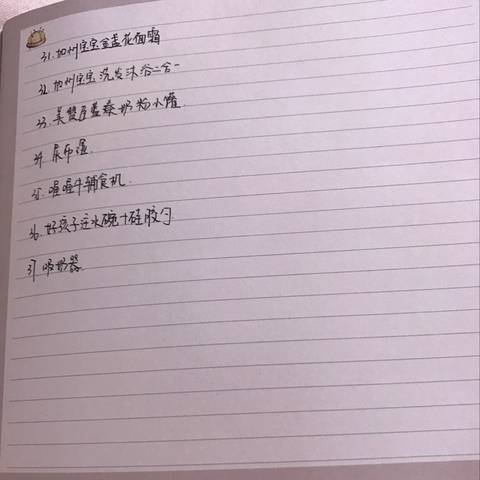 31.加州宝宝金盏花面霜
32.加州宝宝洗发沐浴二合一
33.美赞臣蓝臻奶粉小罐
34.尿布湿
35.喔喔牛辅食机
36.好孩子注水碗+硅胶勺
37吸奶器